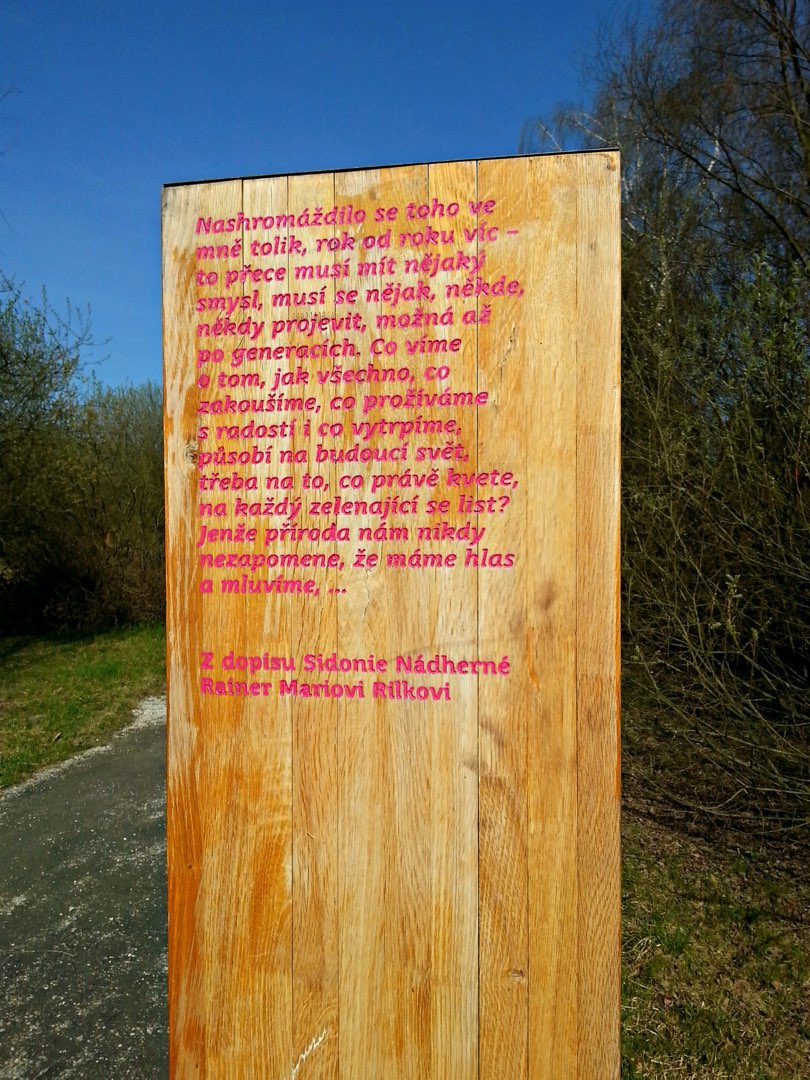 Nashromáždilo se toho ve
mně tolik, rok od roku víc –
to přece musí mít nějaký
smysl, musí se nějak, někde,
někdy projevit, možná až
po generacích. Co víme
o tom, jak všechno, co
zakoušíme, co prožíváme
s radostí i co vytrpíme,
působí na budoucí svět,
třeba na to, co právě kvete,
na každý zelenající se list?
Jenže příroda nám nikdy
nezapomene, že máme hlas
a mluvíme, ...
Z dopisu Sidonie Nádherné
Rainer Mariovi Rilkovi